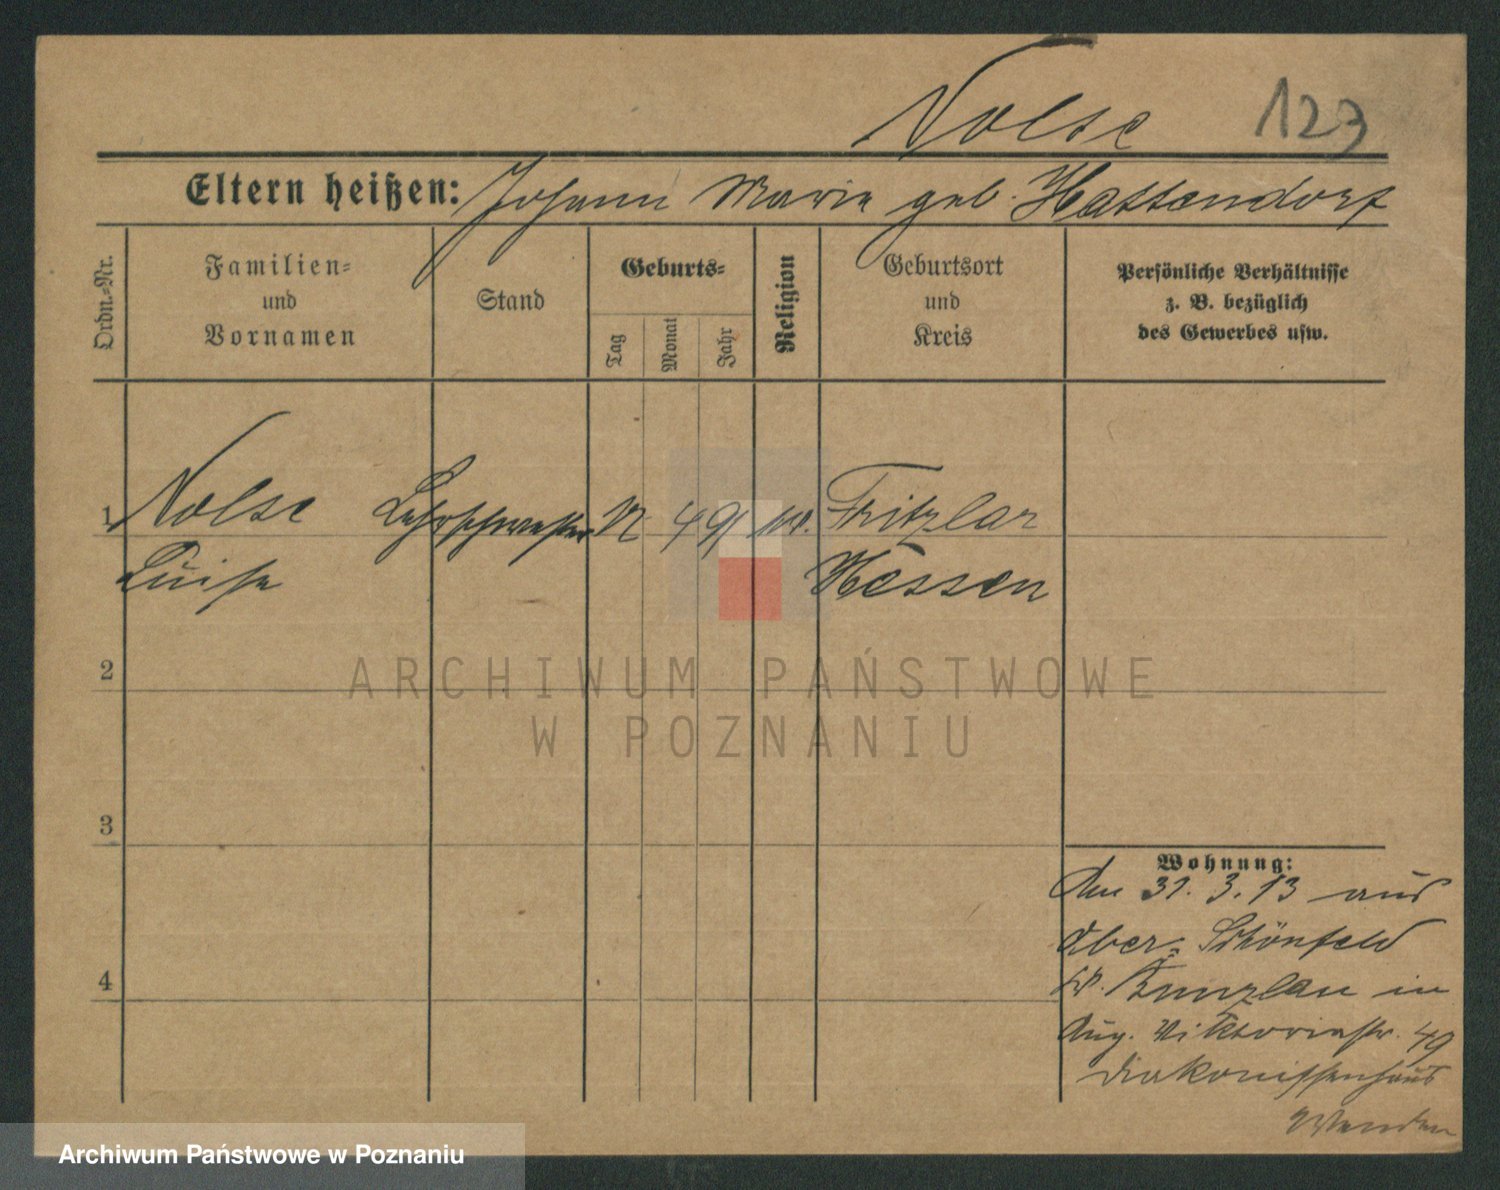 Nolse 123
Eltern heißen: Johann Marie geb. Hattendorf
Ordn.-Nr.
Familien-
und
Vornamen
Stand
Geburts-
Tag
Monat
Jahr
Religion
Geburtsort
und
Kreis
Persönliche Verhältnisse
z. B. bezüglich
des Gewerbes usw.
1 Nolse Lehrschwester 4 91 Fritzlar
Luise Hessen
2
ARCHIWUM PAŃSTWOWE
W POZNANIU
3
4
Wohnung:
Am 31. 3. 13 aus
Ober-Schönfeld
Kr. Bunzlau in
Aug. Viktoriastr. 49
Diakonissenhaus
Archiwum Państwowe w Poznaniu